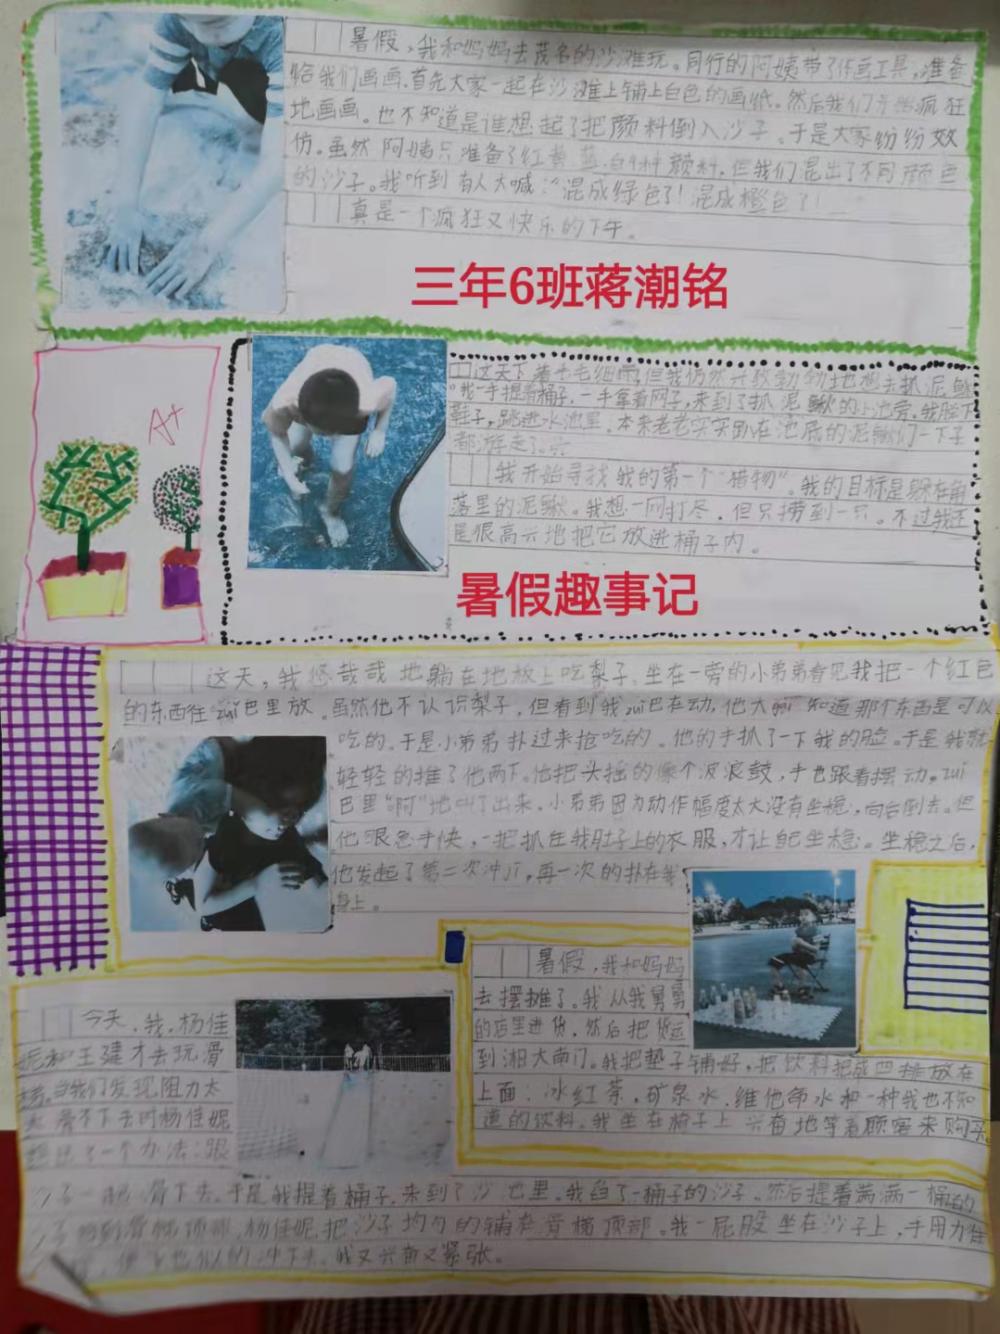 暑假,我和妈妈去茂名的沙滩玩。同行的阿姨带了作画工具,准备
给我们画画。首先大家一起在沙滩上铺上白色的画纸。然后我们开始疯狂
地画画。也不知道是谁想起了把颜料倒入沙子。于是大家纷纷效
仿。虽然阿姨只准备了红黄蓝白4种颜料,但我们混出了不同颜色
的沙子。我听到有人大喊:“混成绿色了!混成橙色了!
真是一个疯狂又快乐的下午。
三年6班蒋潮铭
A+
这天下着牛毛细雨,但我仍然兴致勃勃地想去抓泥鳅
我一手提着桶子,一手拿着网子,来到了抓泥鳅的小池旁。我脱下
鞋子,跳进水池里。本来老老实实趴在池底的泥鳅们一下子
都游走了。
我开始寻找我的第一个“猎物”。我的目标是躲在角
落里的泥鳅。我想一网打尽,但只捞到一只。不过我还
是很高兴地把它放进桶子内。
暑假趣事记
这天,我悠哉哉地躺在地板上吃梨子,坐在一旁的小弟弟看见我把一个红色
的东西往zui巴里放。虽然他不认识梨子,但看到我zui巴在动,他大 知道那个东西是可以
吃的。于是小弟弟扑过来抢吃的。他的手抓了一下我的脸。于是我就
轻轻的推了他两下。他把头摇的像个波浪鼓,手也跟着摆动。zui
巴里“啊”地叫了出来。小弟弟因为动作幅度太大没有坐稳,向后倒去。但
他眼急手快,一把抓住我肚子上的衣服,才让自己坐稳。坐稳之后,
他发起了第二次冲 ,再一次的扑在我
身上。
暑假,我和妈妈
去摆摊了。我从我舅舅
的店里进货,然后把货运
到湘大南门。我把垫子铺好,把饮料把成四排放在
上面:冰红茶,矿泉水,维他命水和一种我也不知
道的饮料。我坐在椅子上兴奋地等着顾客来购买。
今天,我,杨佳
妮和王建才去玩滑
梯。当我们发现阻力太
大滑不下去时杨佳妮
想出了一个办法:跟
沙子一起滑下去。于是我提着桶子,来到了沙地里。我舀了一桶子的沙子。然后提着满满一桶的
沙子 到滑梯顶部,杨佳妮把沙子均匀的铺在滑梯顶部。我一屁股坐在沙子上,手用力往
 ,便飞也似的冲下去。我又兴奋又紧张。